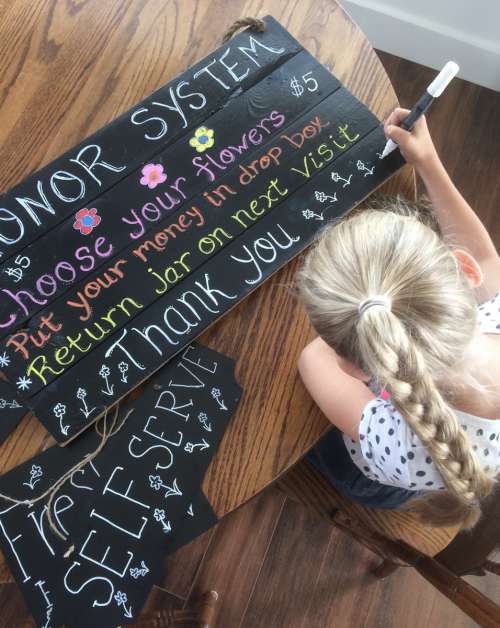 ONOR SYSTEM
$5 $5
hoose your flowers
Put your money in drop box
Return jar on next visit
Thank you
Fres
SELF SERVE